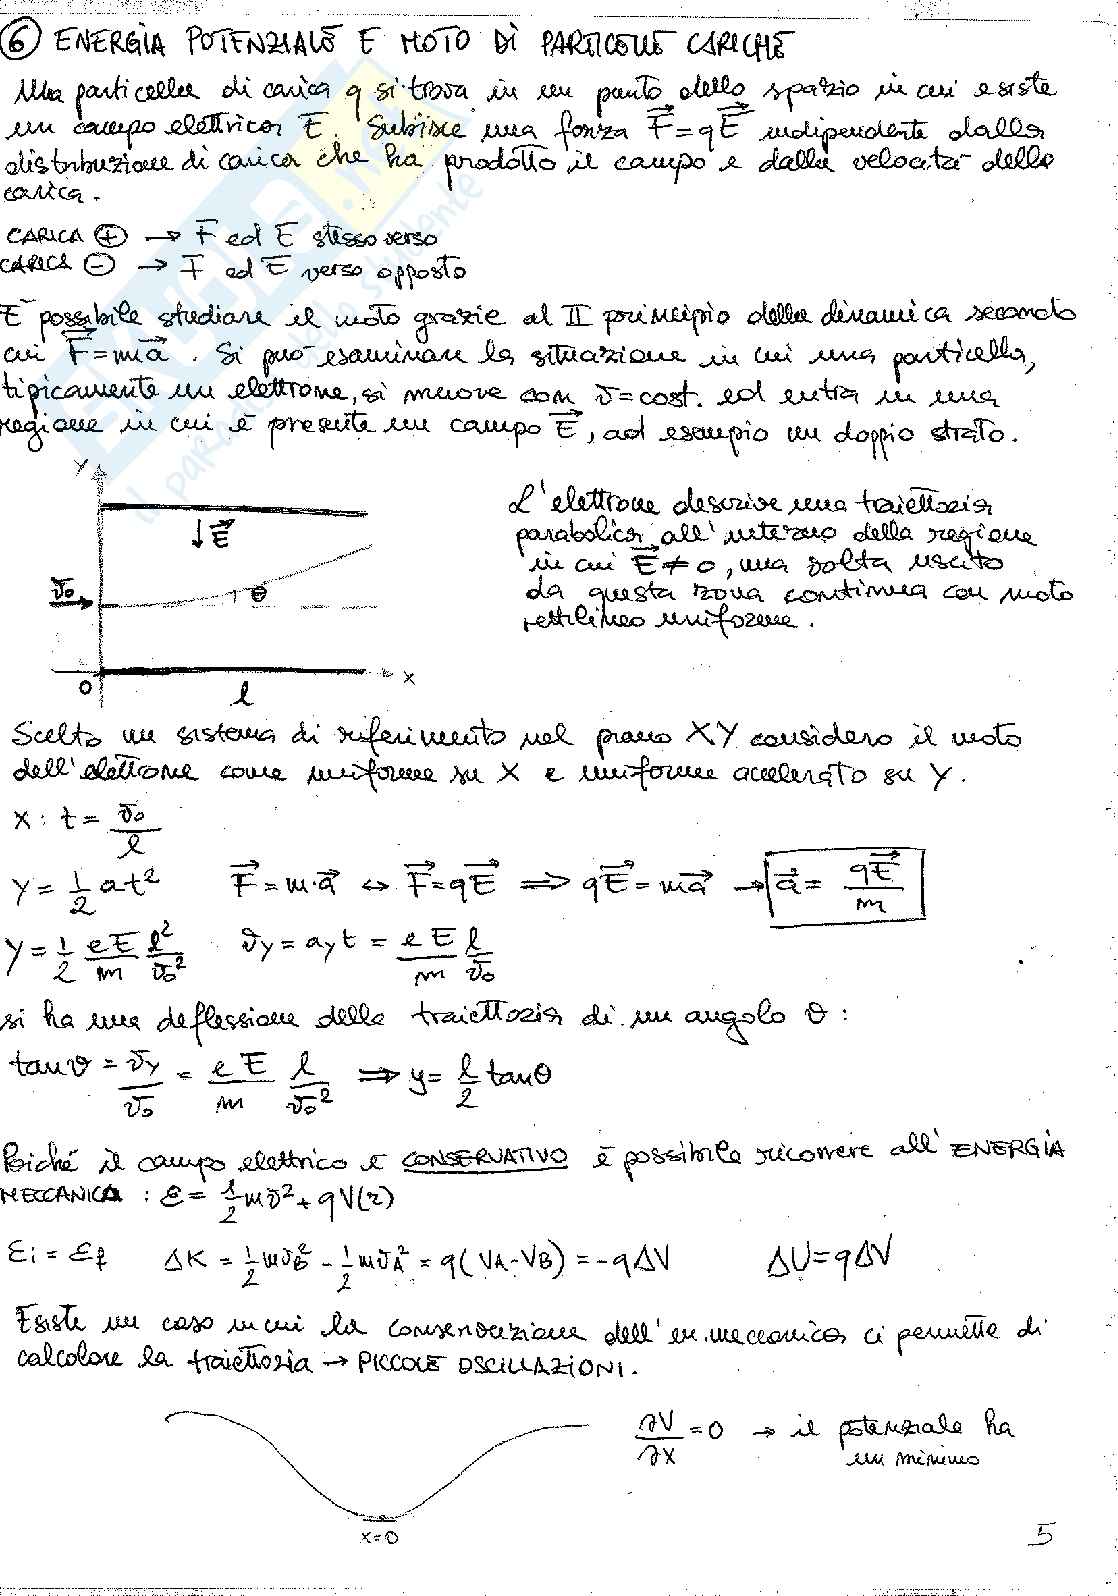 6 ENERGIA POTENZIALE E MOTO DI PARTICELLE CARICHE
Una particella di carica q si trova in un punto dello spazio in cui esiste
un campo elettrico E. Subisce una forza F⃗=qE⃗ indipendente dalla
distribuzione di carica che ha prodotto il campo e dalla velocità della
carica.
CARICA ⊕ → F ed E stesso verso
CARICA ⊖ → F ed E verso opposto
E' possibile studiare il moto grazie al II principio della dinamica secondo
cui F⃗=ma⃗. Si può esaminare la situazione in cui una particella,
tipicamente un elettrone, si muove con v=cost. ed entra in una
regione in cui è presente un campo E⃗, ad esempio un doppio strato.
Y
↓E⃗
L'elettrone descrive una traiettoria
parabolica all'interno della regione
in cui E⃗≠0, una volta uscito
da questa zona continua con moto
rettilineo uniforme.
v0
θ
0
l
x
Scelto un sistema di riferimento nel piano XY considero il moto
dell'elettrone come uniforme su X e uniforme accelerato su Y.
X: t = v0/l
Y = 1/2 at² F⃗=m·a⃗ ↔ F⃗=qE⃗ ⇒ qE⃗=ma⃗ → a⃗= qE⃗/m
Y = 1/2 eE/m l²/v0² vy = ay t = eE/m l/v0
si ha una deflessione della traiettoria di un angolo θ:
tanθ = vy/v0 = eE/m l/v0² ⇒ y= l/2 tanθ
Poiché il campo elettrico è CONSERVATIVO è possibile ricorrere all'ENERGIA
MECCANICA: ℰ= 1/2 mv²+qV(r)
ℰi = ℰf ΔK = 1/2 mvB² - 1/2 mvA² = q(VA-VB) = -qΔV ΔU=qΔV
Esiste un caso in cui la conservazione dell'en. meccanica ci permette di
calcolare la traiettoria → PICCOLE OSCILLAZIONI.
∂V/∂X =0 → il potenziale ha
un minimo
x=0
5